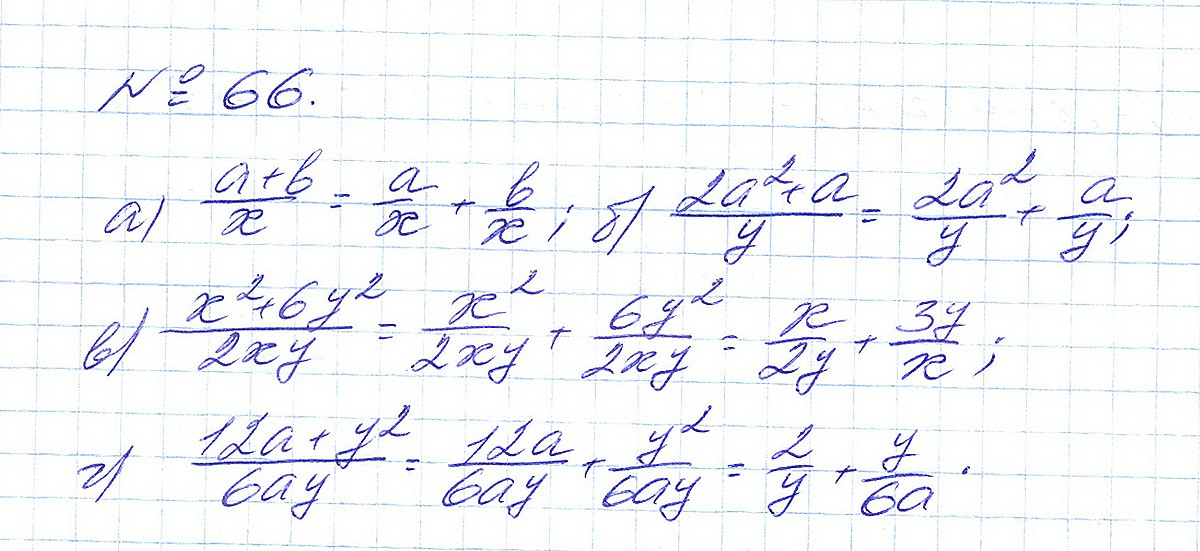 № 66.
а) (a+b)/x = a/x + b/x; б) (2a²+a)/y = 2a²/y + a/y;
в) (x²+6y²)/(2xy) = x²/(2xy) + 6y²/(2xy) = x/(2y) + 3y/x;
г) (12a+y²)/(6ay) = 12a/(6ay) + y²/(6ay) = 2/y + y/(6a).